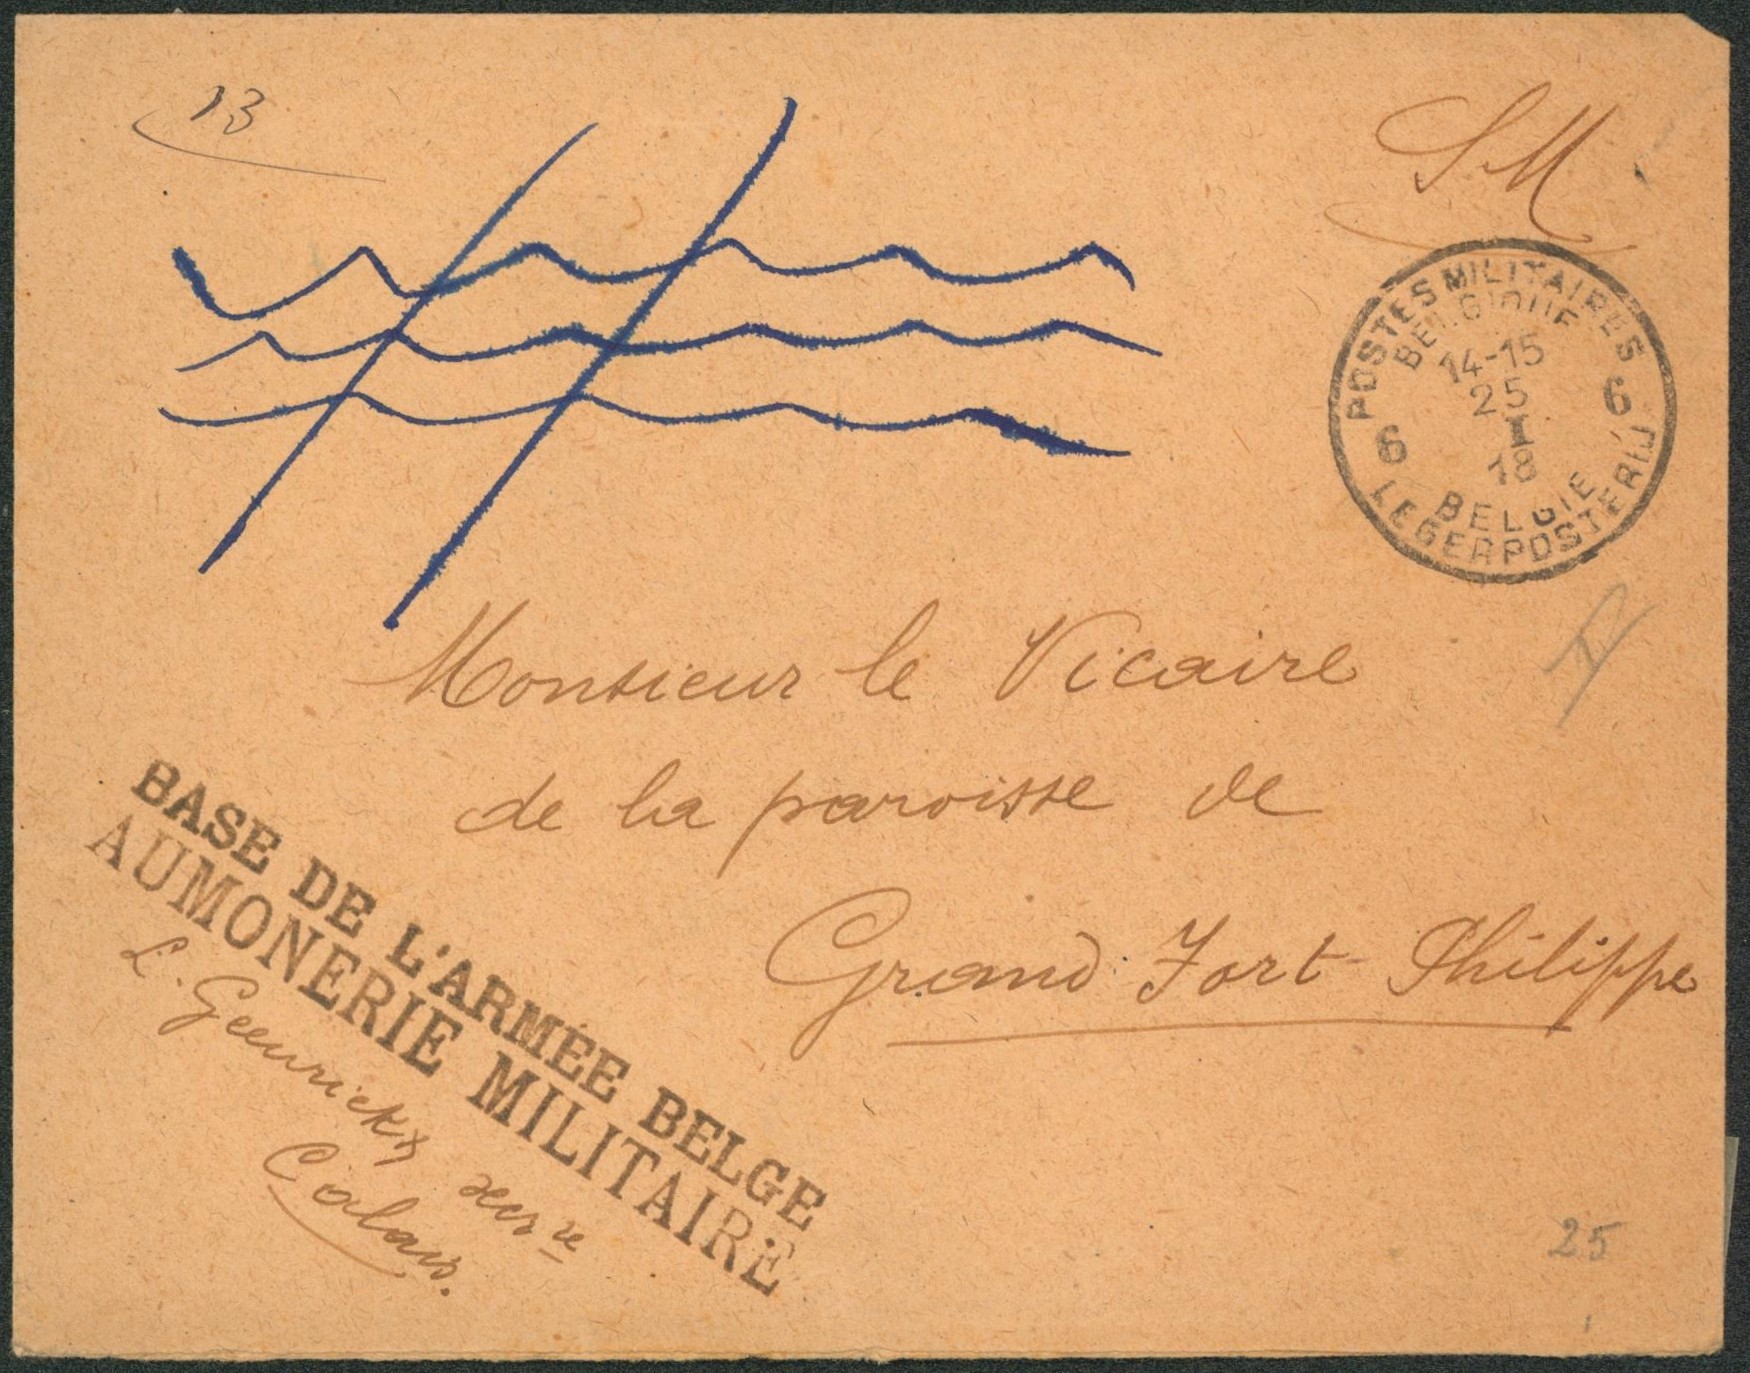 13
SM
POSTES MILITAIRES
BELGIQUE
14-15
25
I
18
6 6
BELGIE
LEGERPOSTERIJ
Monsieur le Vicaire
de la paroisse de
Grand Fort-Philippe
BASE DE L'ARMÉE BELGE
AUMONERIE MILITAIRE
L. Geeurickx secre
Calais.
25